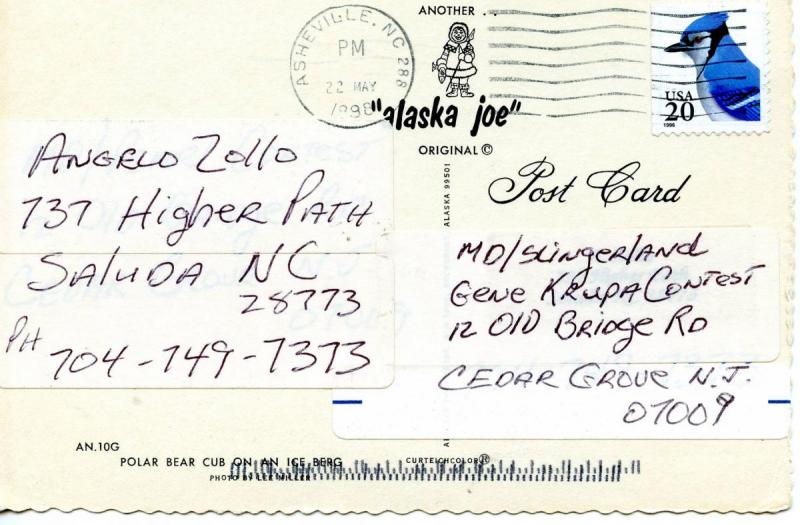 ASHEVILLE, NC 288
PM
22 MAY
1998
ANOTHER . .
"alaska joe"
ORIGINAL ©
ALASKA 99501
USA
20
1996
Post Card
ANGELO Zollo
737 Higher PATH
SAluDA NC
28773
PH 704-749-7373
MD/Slingerland
Gene KRupA Contest
12 Old Bridge RD
CEDAR GROVE N.J.
07009
AN.10G
POLAR BEAR CUB ON AN ICE BERG
PHOTO BY LEE MILLER
CURTEICHCOLOR®